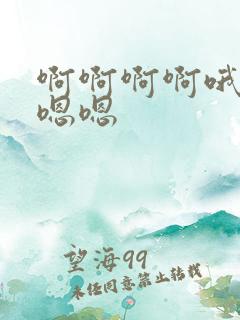 啊啊啊啊哦
嗯嗯
望海99
未经同意禁止转载